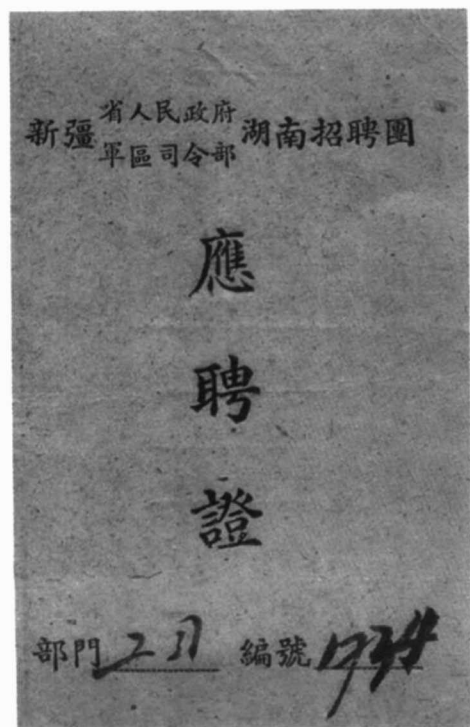 新疆省人民政府軍區司令部湖南招聘團
應
聘
證
部門 編號1734